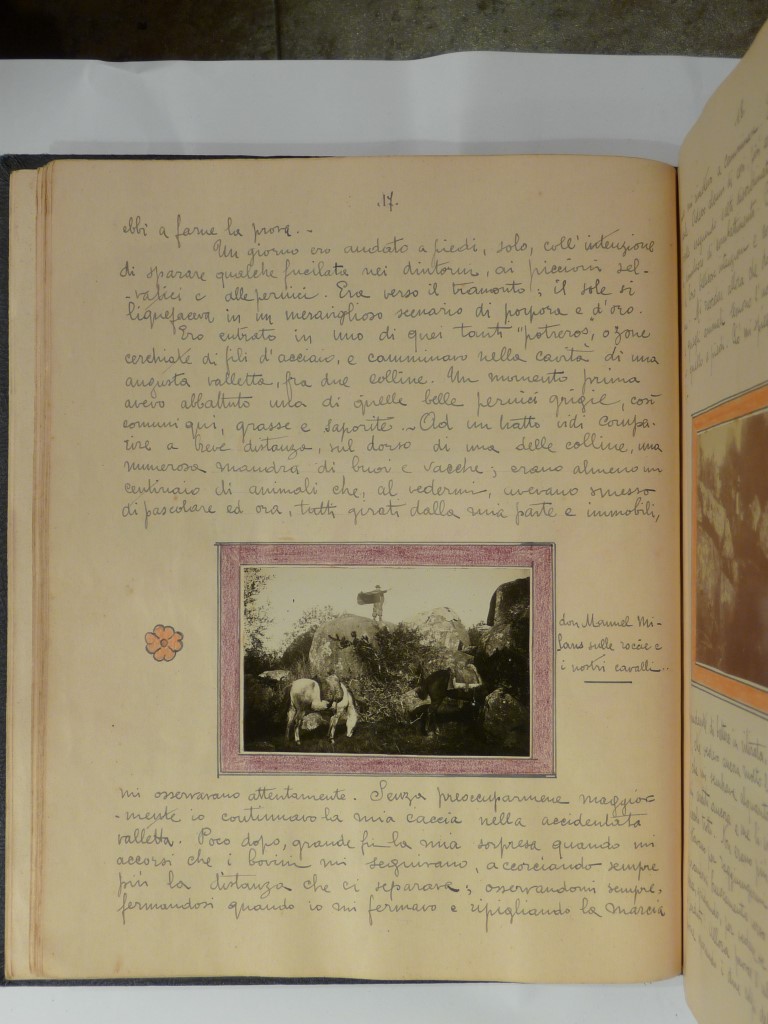 .17.
ebbi a farne la prova. -
Un giorno ero andato a piedi, solo, coll'intenzione
di sparare qualche fucilata nei dintorni, ai piccioni sel-
-vatici e alle pernici. Era verso il tramonto; il sole si
liquefaceva in un meraviglioso scenario di porpora e d'oro.
Ero entrato in uno di quei tanti "potreros", o zone
cerchiate di fili d'acciaio, e camminavo nella cavità di una
angusta valletta, fra due colline. Un momento prima
avevo abbattuto una di quelle belle pernici grigie, così
comuni qui, grasse e saporite. - Ad un tratto vidi compa-
rire a breve distanza, sul dorso di una delle colline, una
numerosa mandra di buoi e vacche; erano almeno un
centinaio di animali che, al vedermi, avevano smesso
di pascolare ed ora, tutti girati dalla mia parte e immobili,
don Manuel Mi-
lans sulle roccie e
i nostri cavalli..
mi osservavano attentamente. Senza preoccuparmene maggior-
-mente io continuavo la mia caccia nella accidentata
valletta. Poco dopo, grande fu la mia sorpresa quando mi
accorsi che i bovini mi seguivano, accorciando sempre
più la distanza che ci separava; osservandomi sempre,
fermandosi quando io mi fermavo e ripigliando la marcia